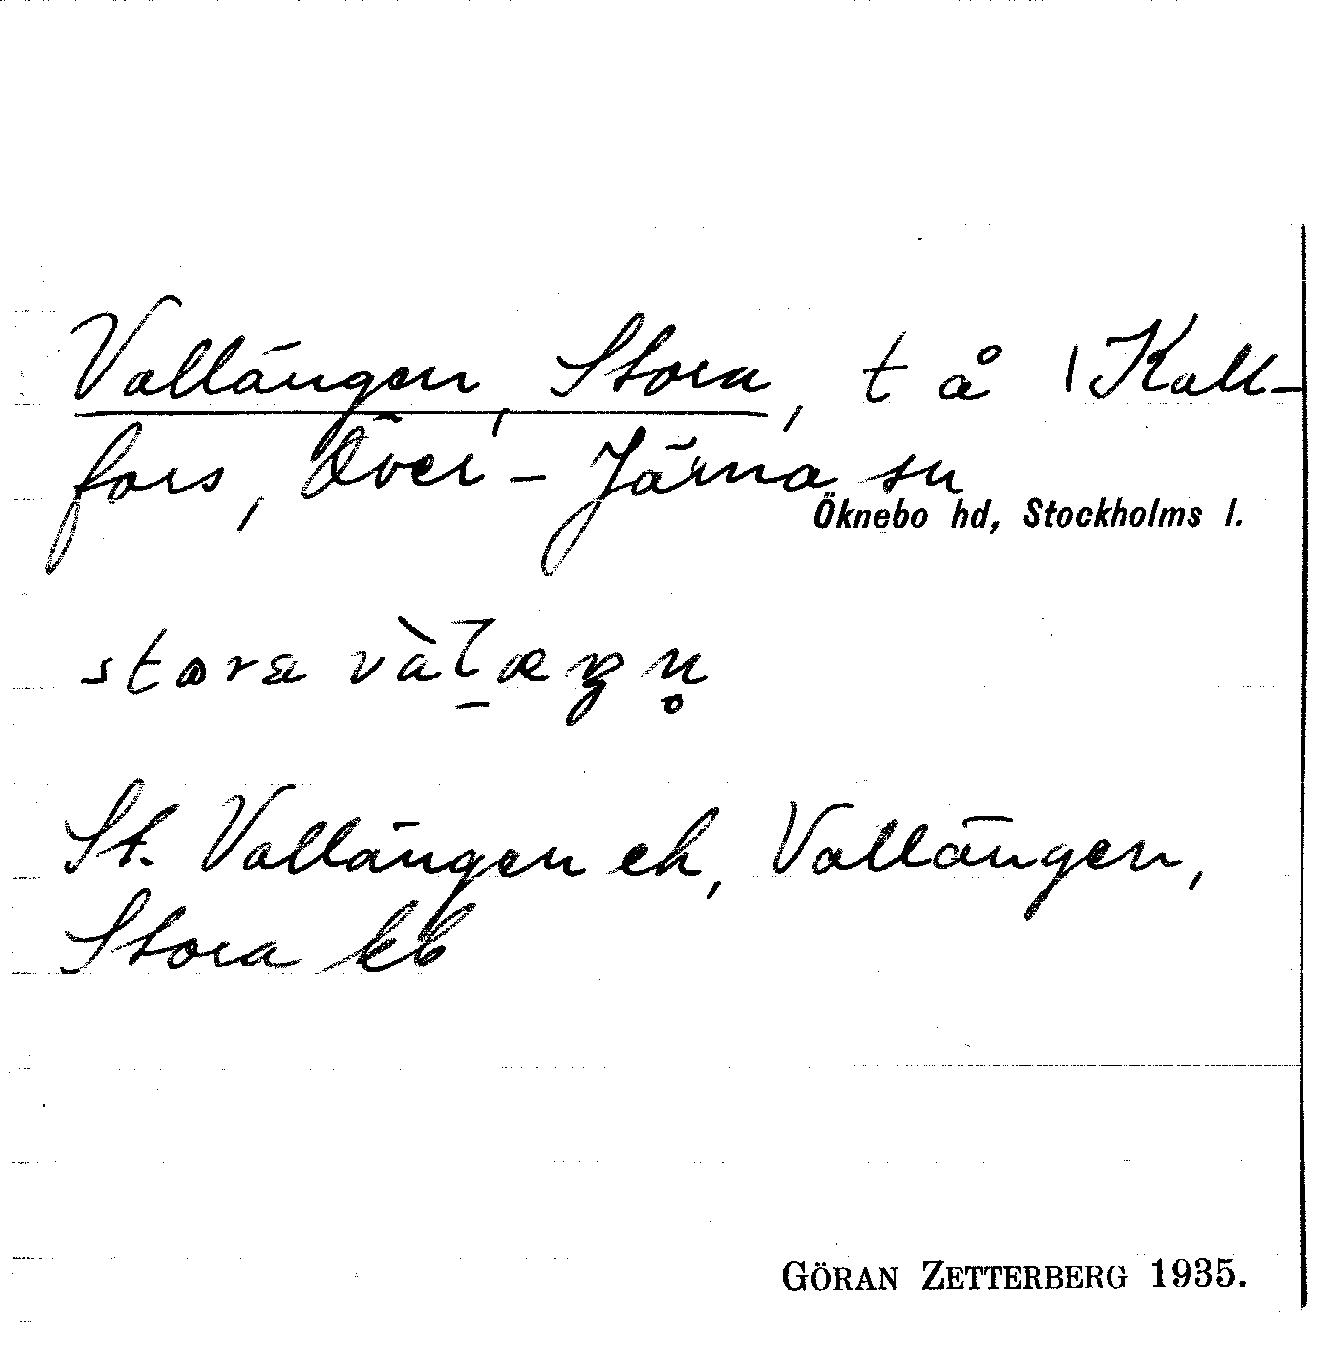 Vallängen, Stora, t å 1 Kall-
fors, Över-Järna sn
Öknebo hd, Stockholms l.
St. Vallängen ek, Vallängen,
Stora kb
GÖRAN ZETTERBERG 1935.